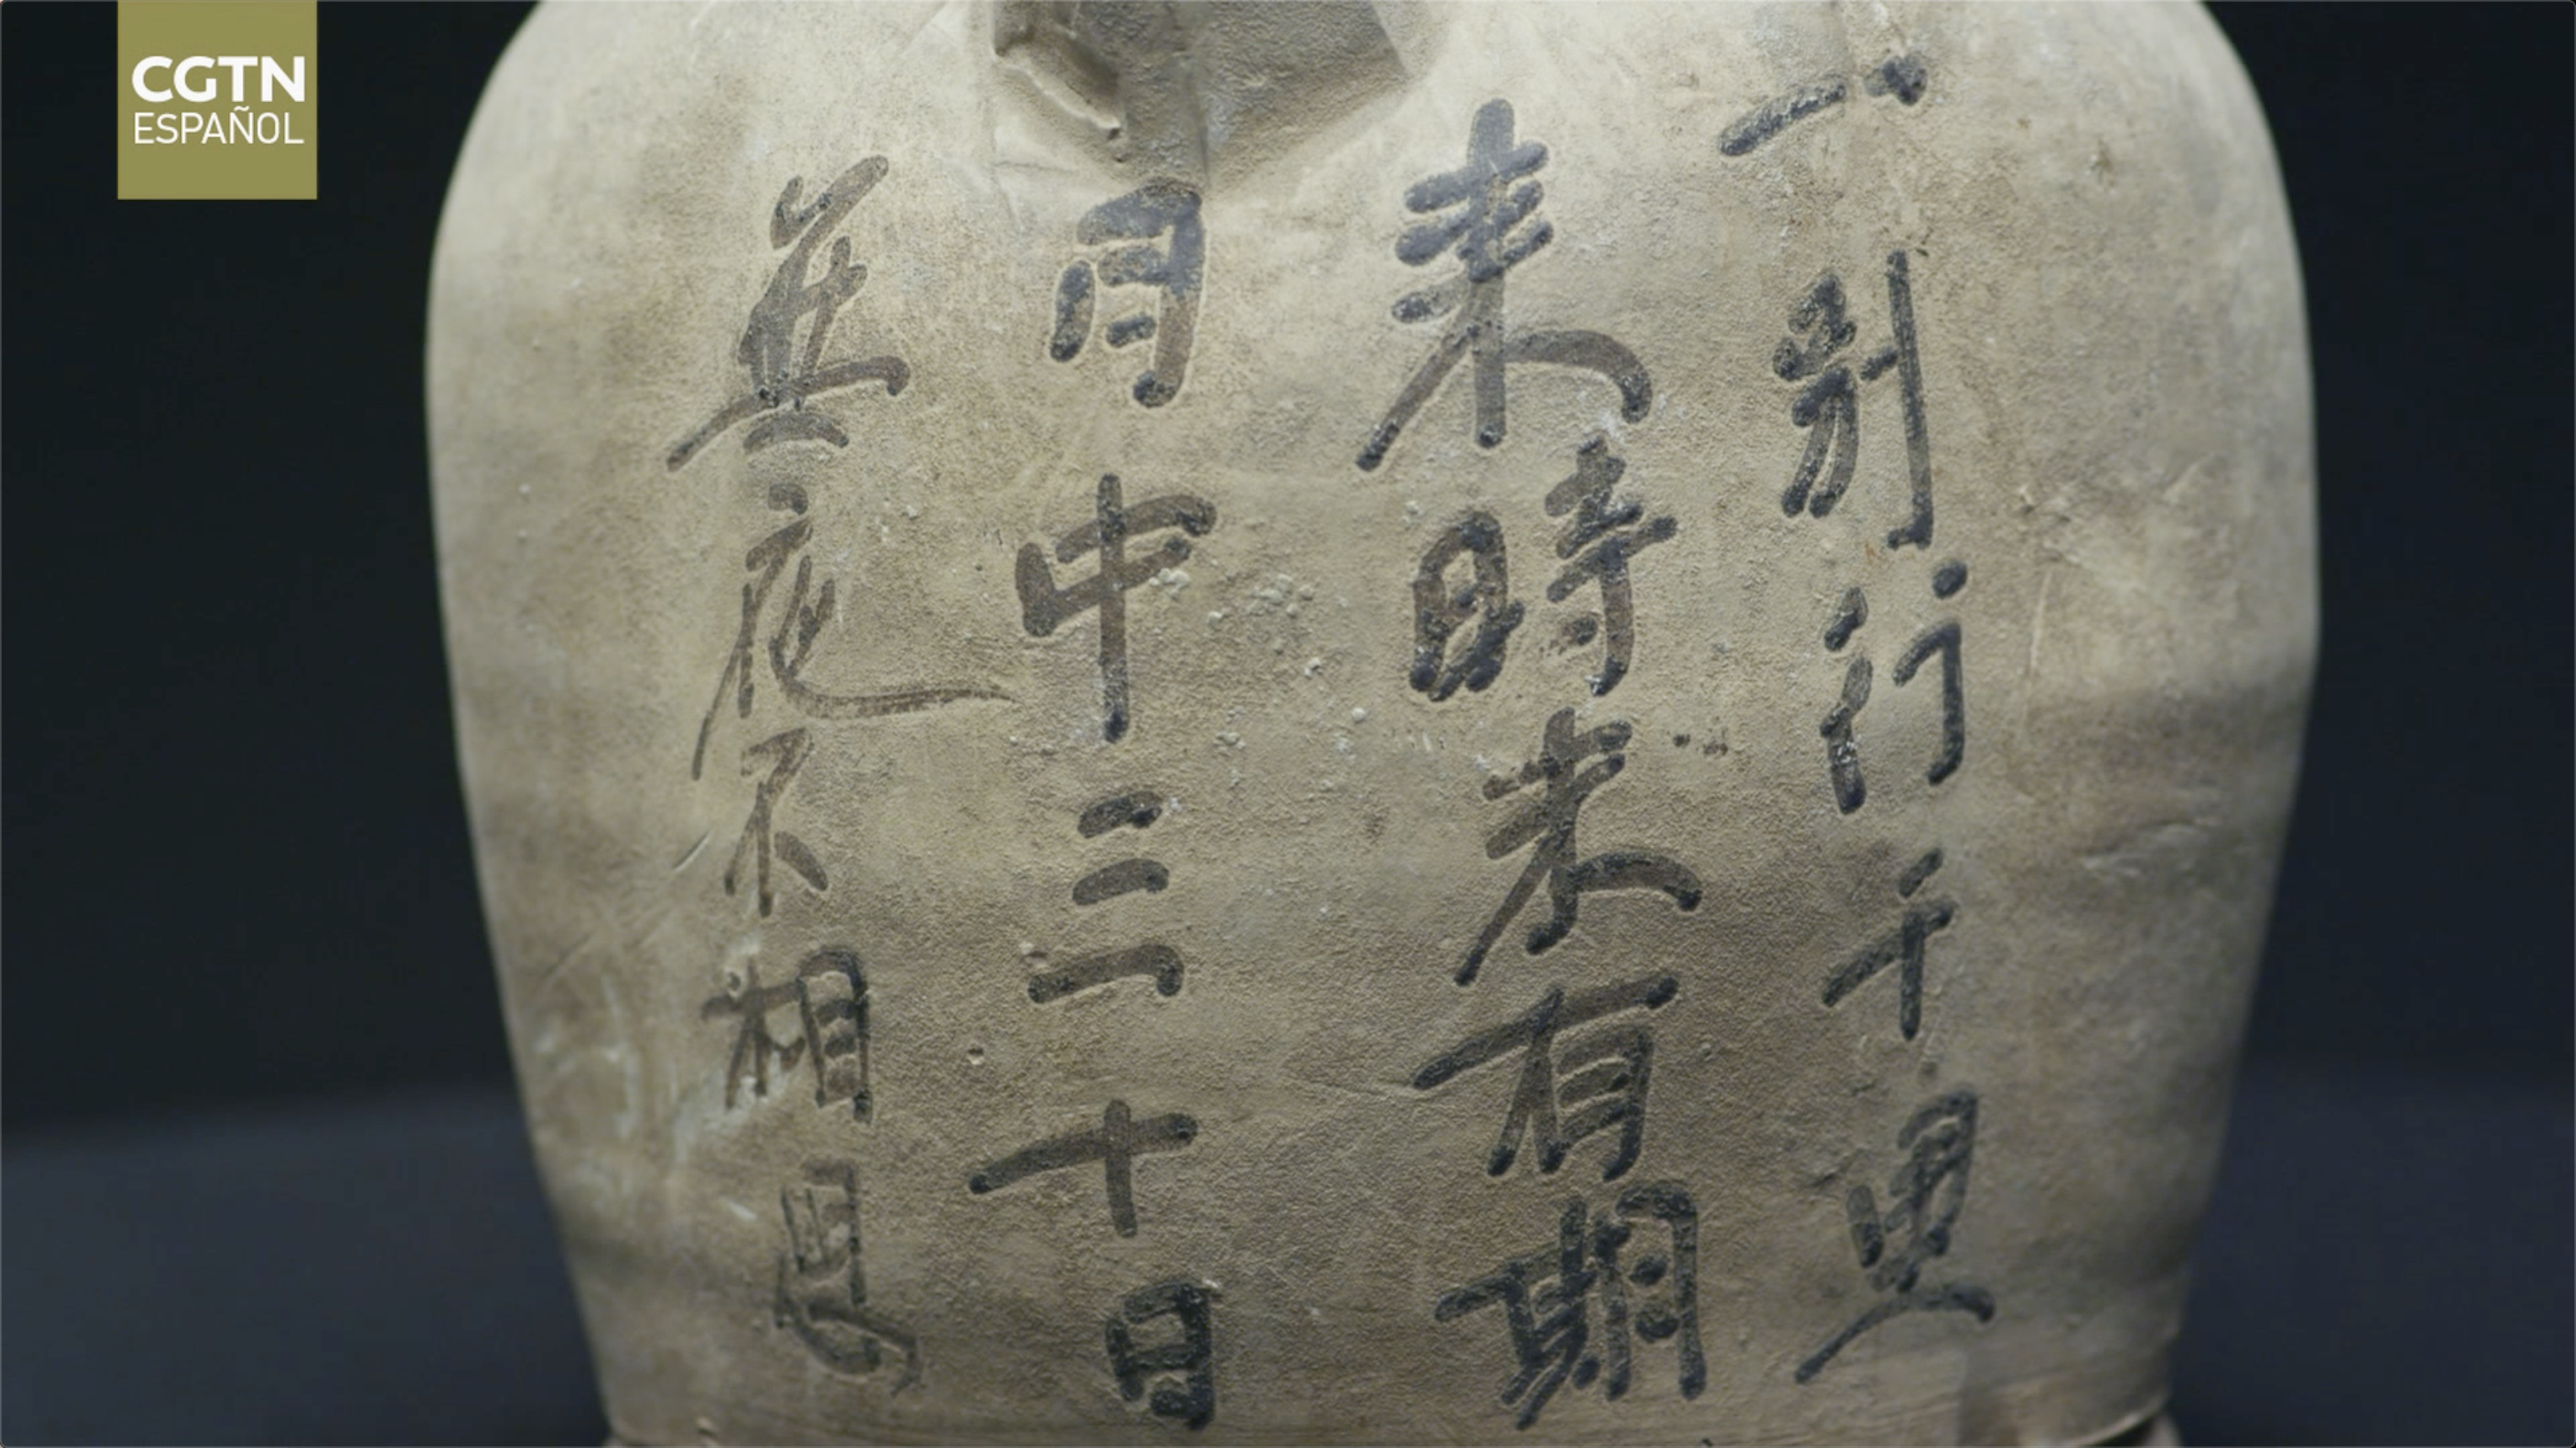 CGTN
ESPAÑOL
一別行千里
來時未有期
月中三十日
無夜不相思